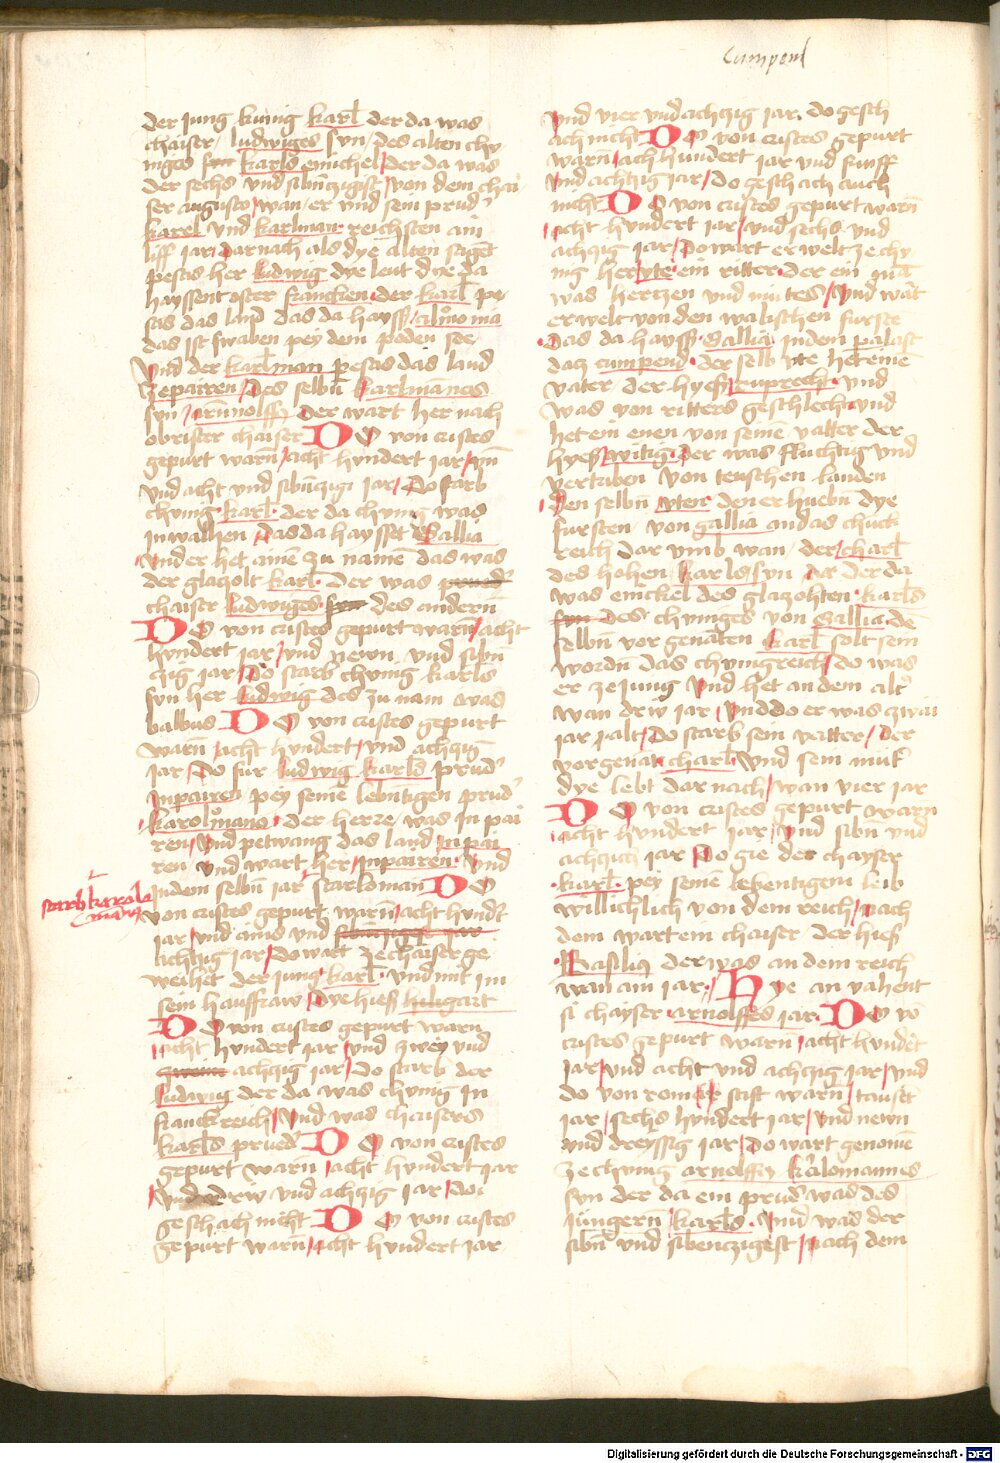 Cumpend
der jung kunig karl der da was
chaiser / ludwiges sun / des alten chu
niges sun karls einichel / der da was
der sechs und sibenczigist / von dem chai
ser augusto / wan / er und sein prud'
karel und karlman reichsten ain
liff jar / darnach als dye alten saget
pesas her ludwig dye leut dye da
hayssent oster francken der karl pe
sas das land das da hayss / almonia
das ist swaben pey dem poden see
Und der karlman pesas das land
ze pairen / Des selbn karlmannes
sun / arnnolff der wart her nach
obrister chaiser Do von cristes
gepurt warn / acht hundert jar / un
und acht und sibenczigi jar / Do starb
chunig karl der da chunig was
in walhen / das da haysset Gallia
und er het ainen zu namen das was
der glaczolt karl der was prud'
chaiser ludwiges sun des andern
Do von cristes gepurt warn / acht
hundert jar / und newn und siben
czig jar / Do starb chunig karls
sun her ludwig des zu nam was
balbus Do von cristes gepurt
warn / acht hundert / und achczig
jar / Do fur ludwig karls prud'
in pairen pey seinem lebntigen prud'
karolomano der herre / was in pai
ren / und petwang das land in pai
ren und wart her in pairen und
in dem selbn jar starb karloman Do
von cristes gepurt warn / acht hundt
jar / und ains und sibnczigk jar
achczig jar / do wart ze chaiser ge
weihet der jung karl und mit im
sein hauffraw / dye hiess hiligart
Do von cristes gepurt warn
acht hundert jar / und zwey und
achczig jar / do starb der
ludwig der da was chunig in
franckreich / und was chaisers
karls prued' Do von cristes
gepurt warn / acht hundert jar
und driw und achczig jar / do
geschach nicht Do von cristes
gepurt warn / acht hundert jar
starb karolo
man
und vier und achczig jar do gesch
ach nicht Do von cristes gepurt
warn / ach hundert jar und funff
und achczig jar / do geschach auch
nicht Do von cristes gepurt warn
acht hundert jar / und sechs und
achczig jar / Do wart erwelt ze chu
nig her / yte ein ritter der ein man
was herczen und mutes / und wart
erwelt von den walischen furste
das da hayss Gallia in dem palast
dacz cumpend der selb yte het eine
vater der hyess / ruprecht und
was von ritters geschlecht und
het ein enen von seine vatter der
hyess / witig der was fluchtig und
vertriben von teuschen landen
den selbn yten den erhuebn dye
fursten von gallia an das chuck
reich dar umb wan / der / charl
des hohen karls sun der der da
was einckel des glaczohten karls
sun des chuniges von Gallia de
selbn vor genanten karl solt sein
wordn das chunigreich / do was
er ze jung und het an dem alt'
wan drw jar / und do er was zwai
jar jalt / Do starb sein vatter / der
vor genat charl und sein mut'
dye lebt dar nach / wan vier jar
Do von cristes gepurt warn
acht hundert jar / und sibn und
achczich jar Do gie der chayser
karl pey seinem lebentigem leib
willichlich von dem reich / nach
dem wart ein chaiser der hies
Basilius der was an dem reich
wan ain jar / Hye an vahent
si chayser arnolffes jar Do vo
cristes gepurt warn / acht hundet
jar / und acht und achczig jar / und
do von romer stift warn / tauset
jar / sechs hundert jar / und newn
und dreyssig jar / do wart genome
ze chunig arnolff kalomannes
sun der da ein prud' was des
jungern / karls und was der
sibn und sibenczigest / nach dem
Digitalisierung gefördert durch die Deutsche Forschungsgemeinschaft - DFG